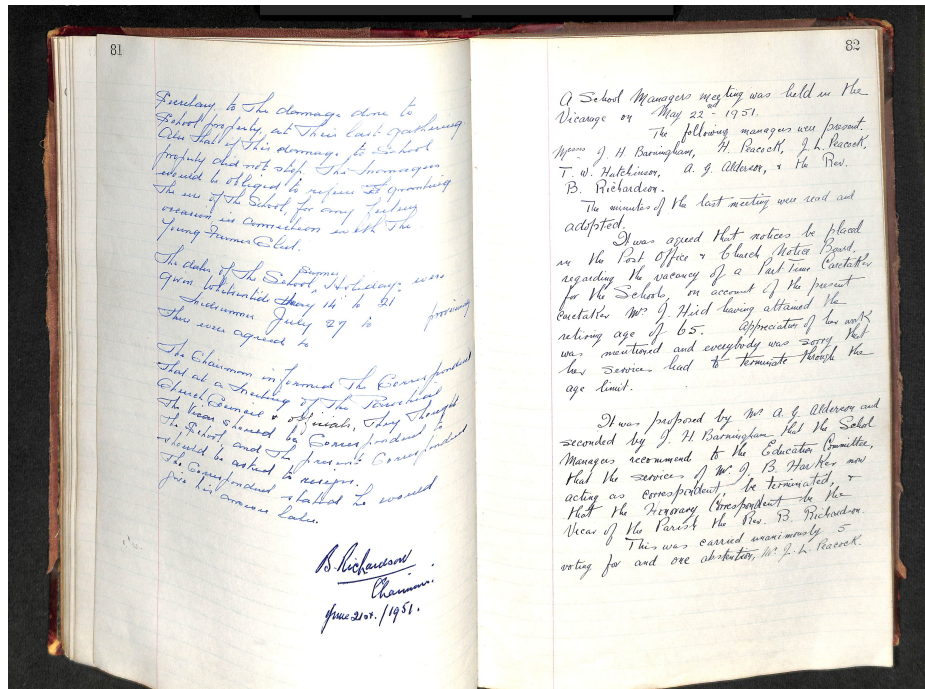 81
Secretary. to The damage done to
School property, at This last gathering.
Also that if This damage to School
property did not stop. The Managers
would be obliged to refuse granting
The use of The School, for any future
occasion in connection with The
Young Farmers Club.
The dates of The School Summer Holidays were
given Whitsuntide May 14 to 21
Midsummer July 27 to
These were agreed to
The Chairman informed The Correspondent
That at a Meeting of The Parochial
Church Council & officials, They Thought
The Vicar should be Correspondent to
The School, and The present Correspondent
should be asked to resign.
The Correspondent stated he would
give his answer later.
B. Richardson
Chairman.
June 21st. / 1951.
82
A School Managers meeting was held in the
Vicarage on May 22nd - 1951.
The following managers were present.
Messrs J. H. Barningham, H. Peacock, J. L. Peacock,
T. W. Hutchinson, A. G. Alderson, & the Rev.
B. Richardson.
The minutes of the last meeting were read and
adopted.
It was agreed that notices be placed
in the Post Office & Church Notice Board,
regarding the vacancy of a Part Time Caretaker
for the Schools, on account of the present
caretaker Mrs J. Hird having attained the
retiring age of 65. Appreciation of her work
was mentioned and everybody was sorry that
her services had to terminate through the
age limit.
It was proposed by Mr. A. G. Alderson and
seconded by J. H Barningham that the School
Managers recommend to the Education Committee,
that the services of Mr. J. B. Harker now
acting as correspondent, be terminated, &
that the Honorary Correspondent be the
Vicar of the Parish the Rev. B. Richardson.
This was carried unanimously 5
voting for and one abstention, Mr J. L. Peacock.